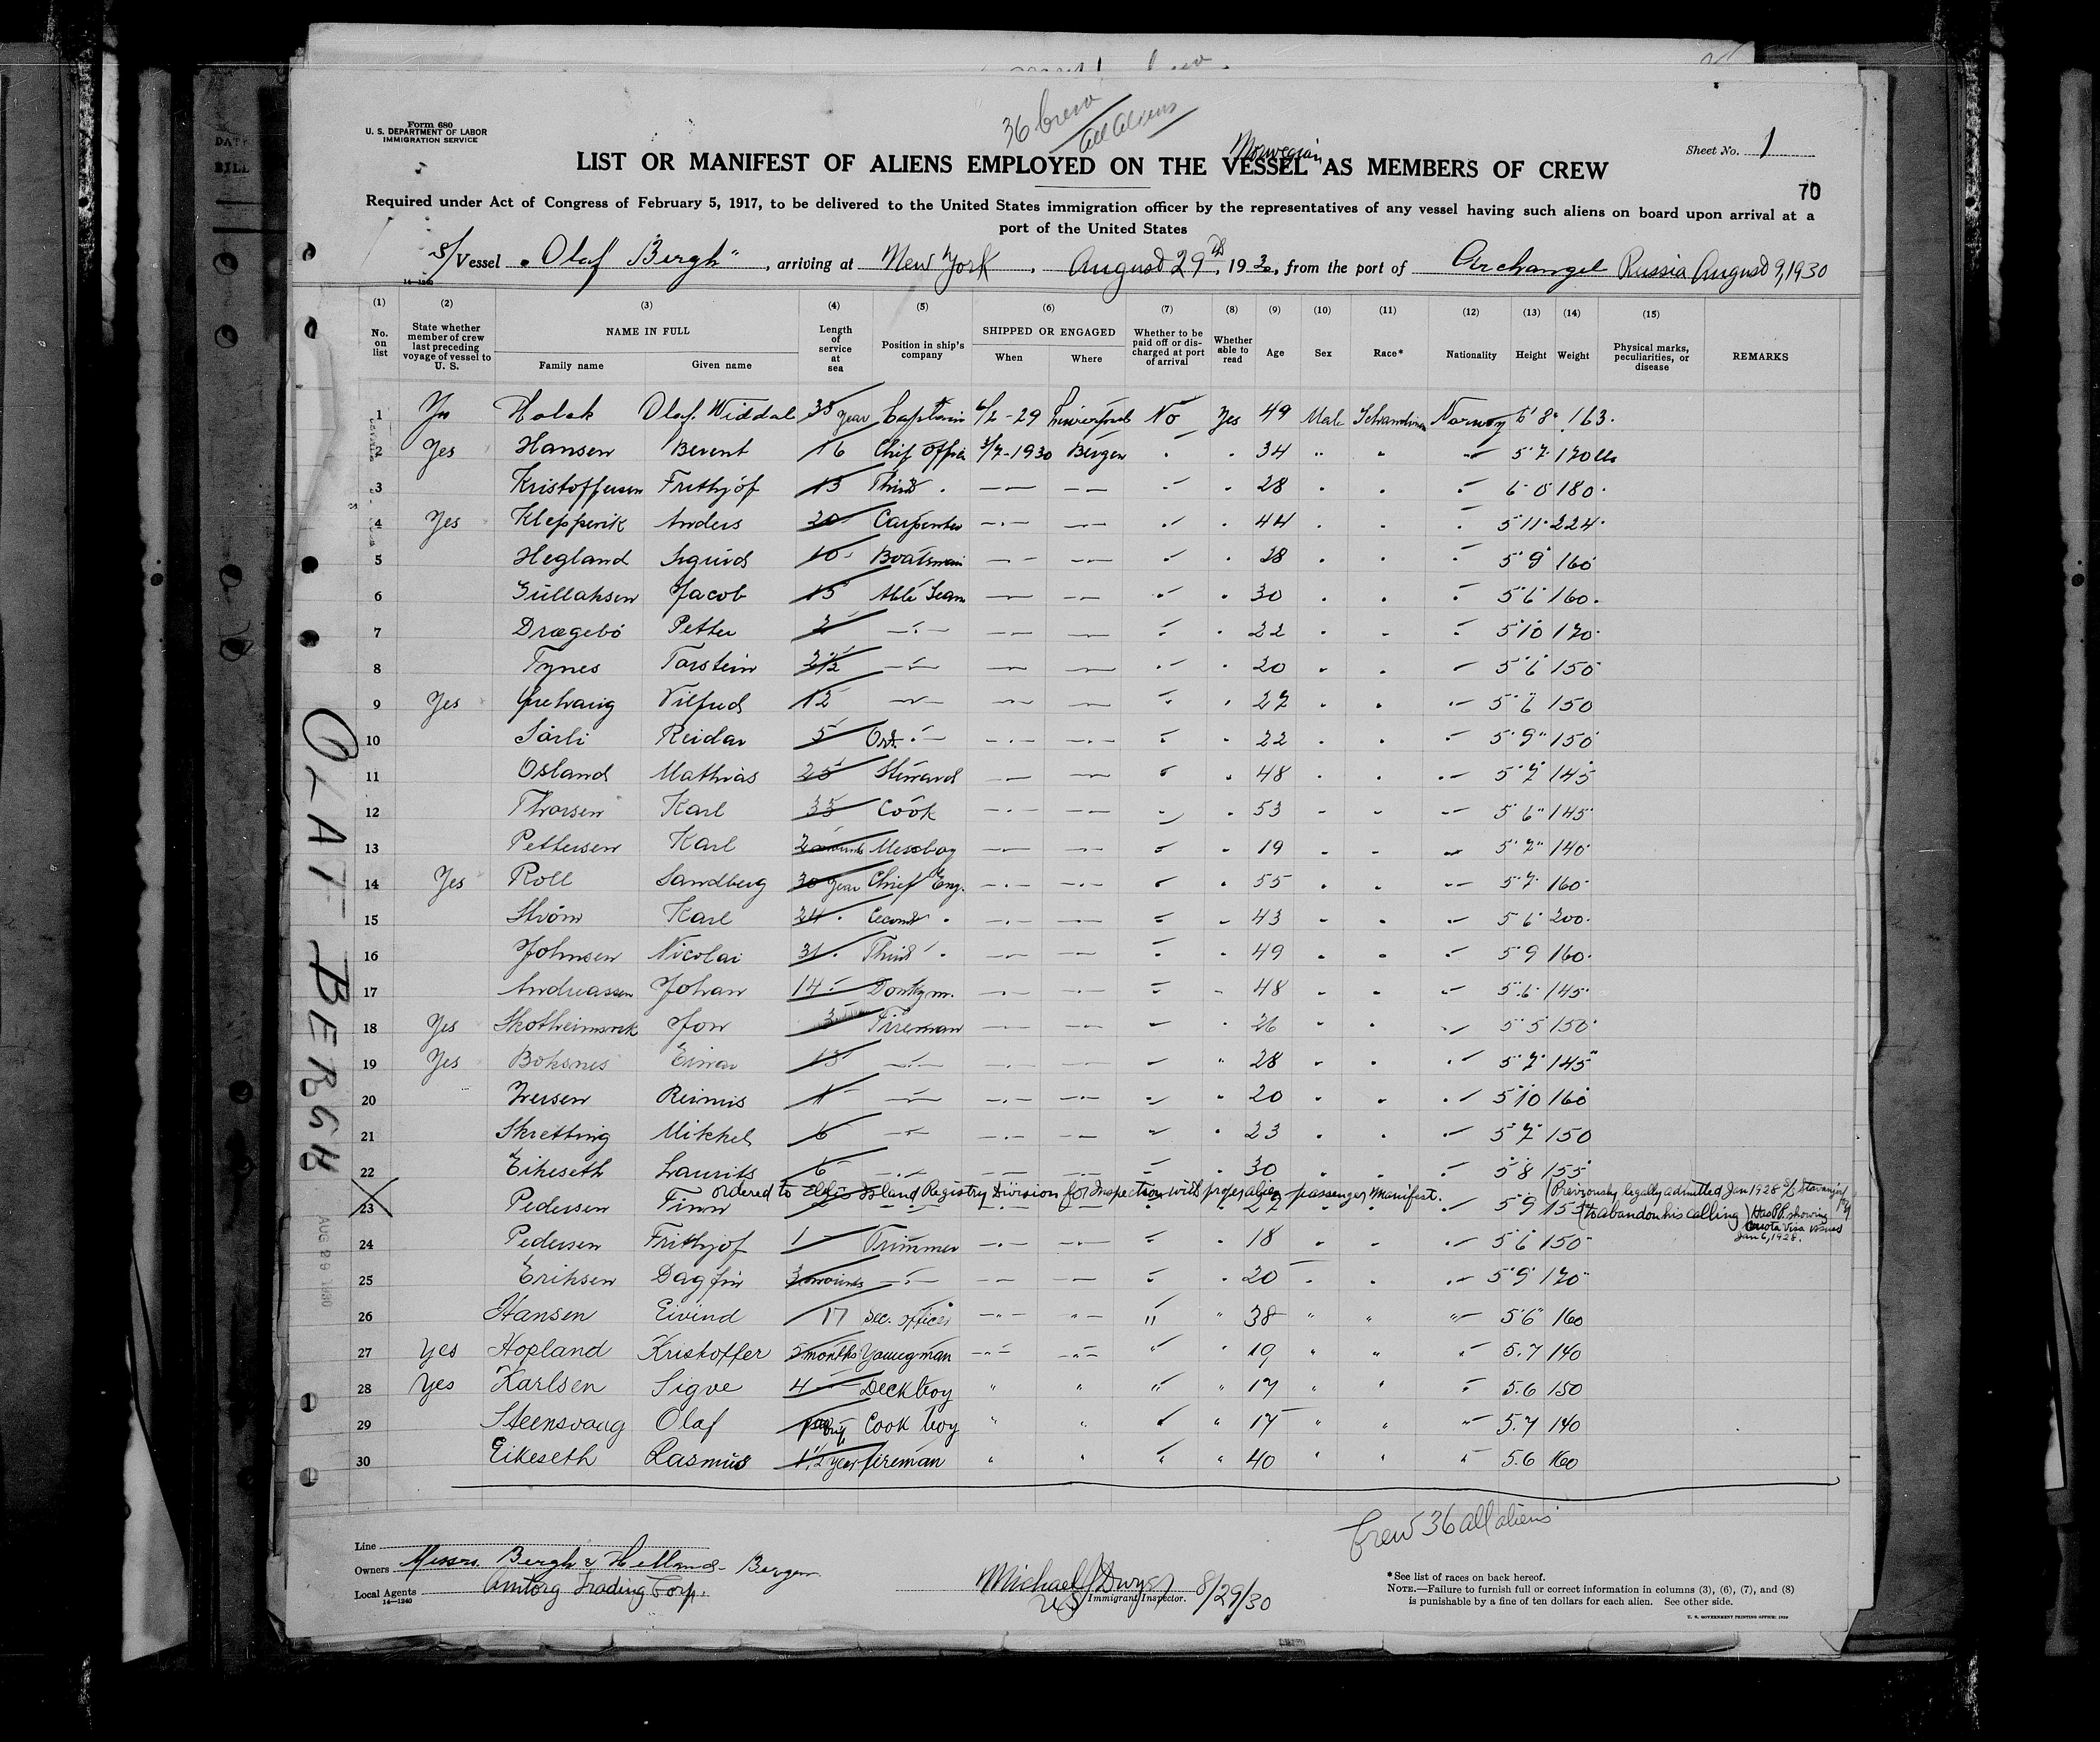 36 Crew
All Aliens
Form 680
U. S. DEPARTMENT OF LABOR
IMMIGRATION SERVICE
Norwegian
Sheet No. 1
LIST OR MANIFEST OF ALIENS EMPLOYED ON THE VESSEL AS MEMBERS OF CREW
70
Required under Act of Congress of February 5, 1917, to be delivered to the United States immigration officer by the representatives of any vessel having such aliens on board upon arrival at a
port of the United States
S/Vessel "Olaf Bergh", arriving at New York, August 29th, 1930, from the port of Archangel Russia August 9, 1930
14-1240
(1) (2) (3) (4) (5) (6) (7) (8) (9) (10) (11) (12) (13) (14) (15)
No. on list State whether member of crew last preceding voyage of vessel to U. S. NAME IN FULL Family name Given name Length of service at sea Position in ship's company SHIPPED OR ENGAGED When Where Whether to be paid off or discharged at port of arrival Whether able to read Age Sex Race* Nationality Height Weight Physical marks, peculiarities, or disease REMARKS
1 Yes Olaf Widdal 35 year Captain -29 Liverpool No Yes 49 Male Norway 5' 8" 163.
2 Yes Hansen Berent 16 Chif Offic 3/7-1930 Bergen 34 5' 7" 170 lbs
3 Kristoffersen Frithjof 13 Third 28 6' 0 180
4 Yes Anders 20 Carpenter 44 5' 11" 224
5 Hegland Sigurd 10 Boatsman 28 5' 9" 160
6 Gullaksen Jacob 15 Able Seam 30 5' 6" 160
7 Drægebø Petter 22 5' 10 170
8 Tynes Torstein 2 1/2 20 5' 6 150
9 Yes Vilfred 12 27 5' 6 150
10 Sørli Reidar 5 Ord. 22 5' 9" 150
11 Osland Mathias 25 Steward 48 5' 7 145
12 Thorsen Karl 35 Cook 53 5' 6" 145
13 Pettersen Karl Messboy 19 5' 7" 140
14 Yes Roll Sandberg 30 year Chief Eng. 55 5' 7" 160
15 Strøm Karl 24 Second 43 5 6 200
16 Johnsen Nicolai 31 Third 49 5 9 160
17 Andreassen Johan 14 Donkym. 48 5' 6 145
18 Yes Jon 3 Fireman 26 5' 5 150
19 Yes Boksnes Einar 13 28 5' 7" 145
20 Iversen 1 20 5' 10 160
21 Skretting Mikkel 6 23 5' 7 150
22 Eikeseth Laurits 6 30 5' 8 155
ordered to Ellis Island Registry Division for Inspection with proper alien passenger manifest.
(Previously legally admitted Jan 1928 S/S Stavangerfjord
23 Pedersen Finn 27 5' 9 155 to abandon his calling) Has P.P. showing
Quota Visa issued
Jan 6, 1928.
24 Pedersen Frithjof 1 Trimmer 18 5' 6 150
25 Eriksen Dagfin 3 months 20 5' 9" 170
26 Hansen Eivind 17 Sec. officer 38 5'6" 160
27 Yes Hopland Kristoffer 5 months Youngman 19 5.7 140
28 Yes Karlsen Sigve 4 Deckboy 17 5.6 150
29 Steensvaag Olaf Cook boy 17 5.7 140
30 Eikeseth Rasmus 1 1/2 year fireman 40 5.6 160
OLAF BERGH
AUG 29 1930
Crew 36 all aliens
Line
Owners Messrs. Bergh & Helland - Bergen
Local Agents Amtorg Trading Corp.
14-1240
Michael J Dwyer 8/29/30
US Immigrant Inspector.
*See list of races on back hereof.
NOTE.—Failure to furnish full or correct information in columns (3), (6), (7), and (8)
is punishable by a fine of ten dollars for each alien. See other side.